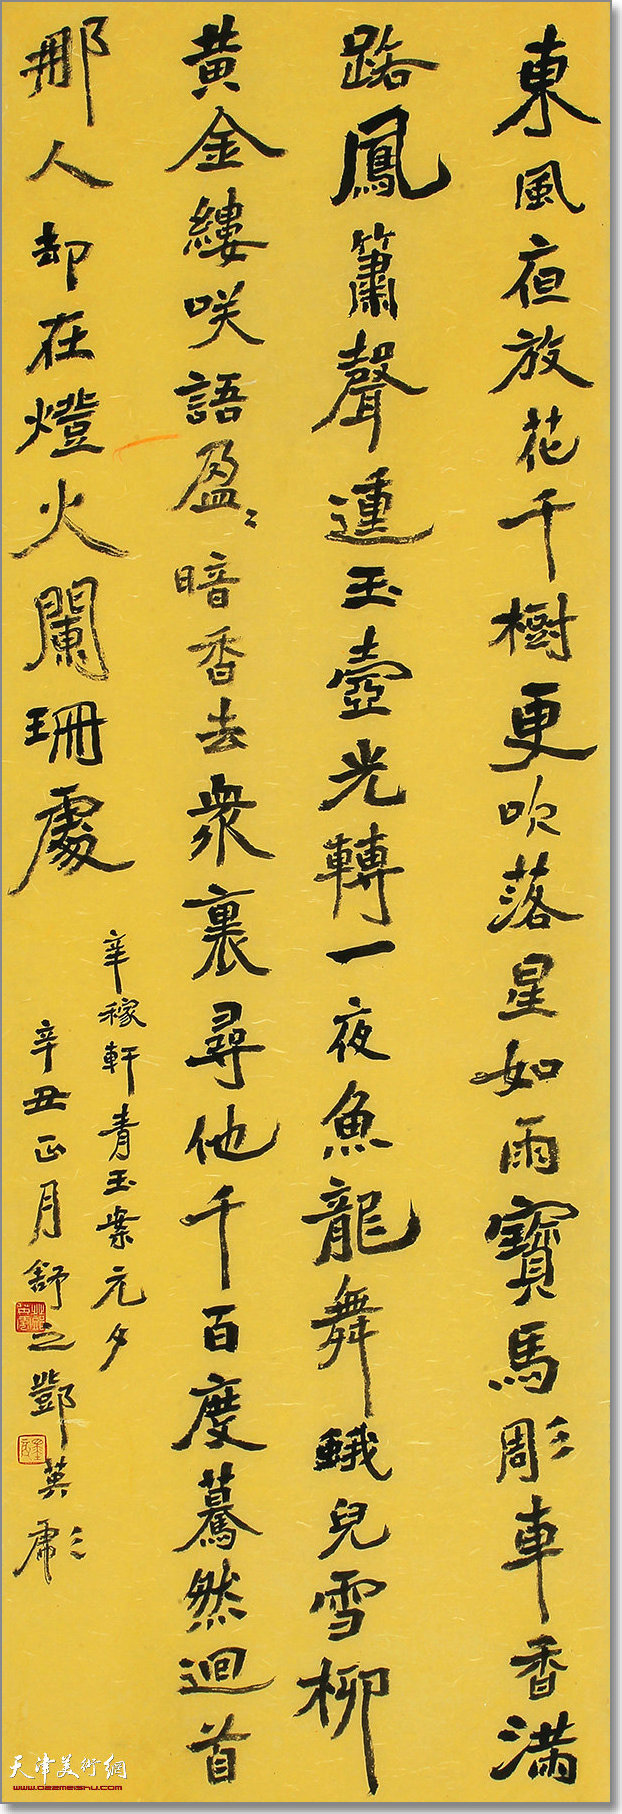 東風夜放花千樹更吹落星如雨寶馬彫車香滿
路鳳簫聲連玉壺光轉一夜魚龍舞蛾兒雪柳
黃金縷咲語盈〻暗香去衆裏尋他千百度驀然迴首
那人却在燈火闌珊處
辛稼軒青玉案元夕
辛丑正月舒之鄧英彪
天津美術網
www.022meishu.com